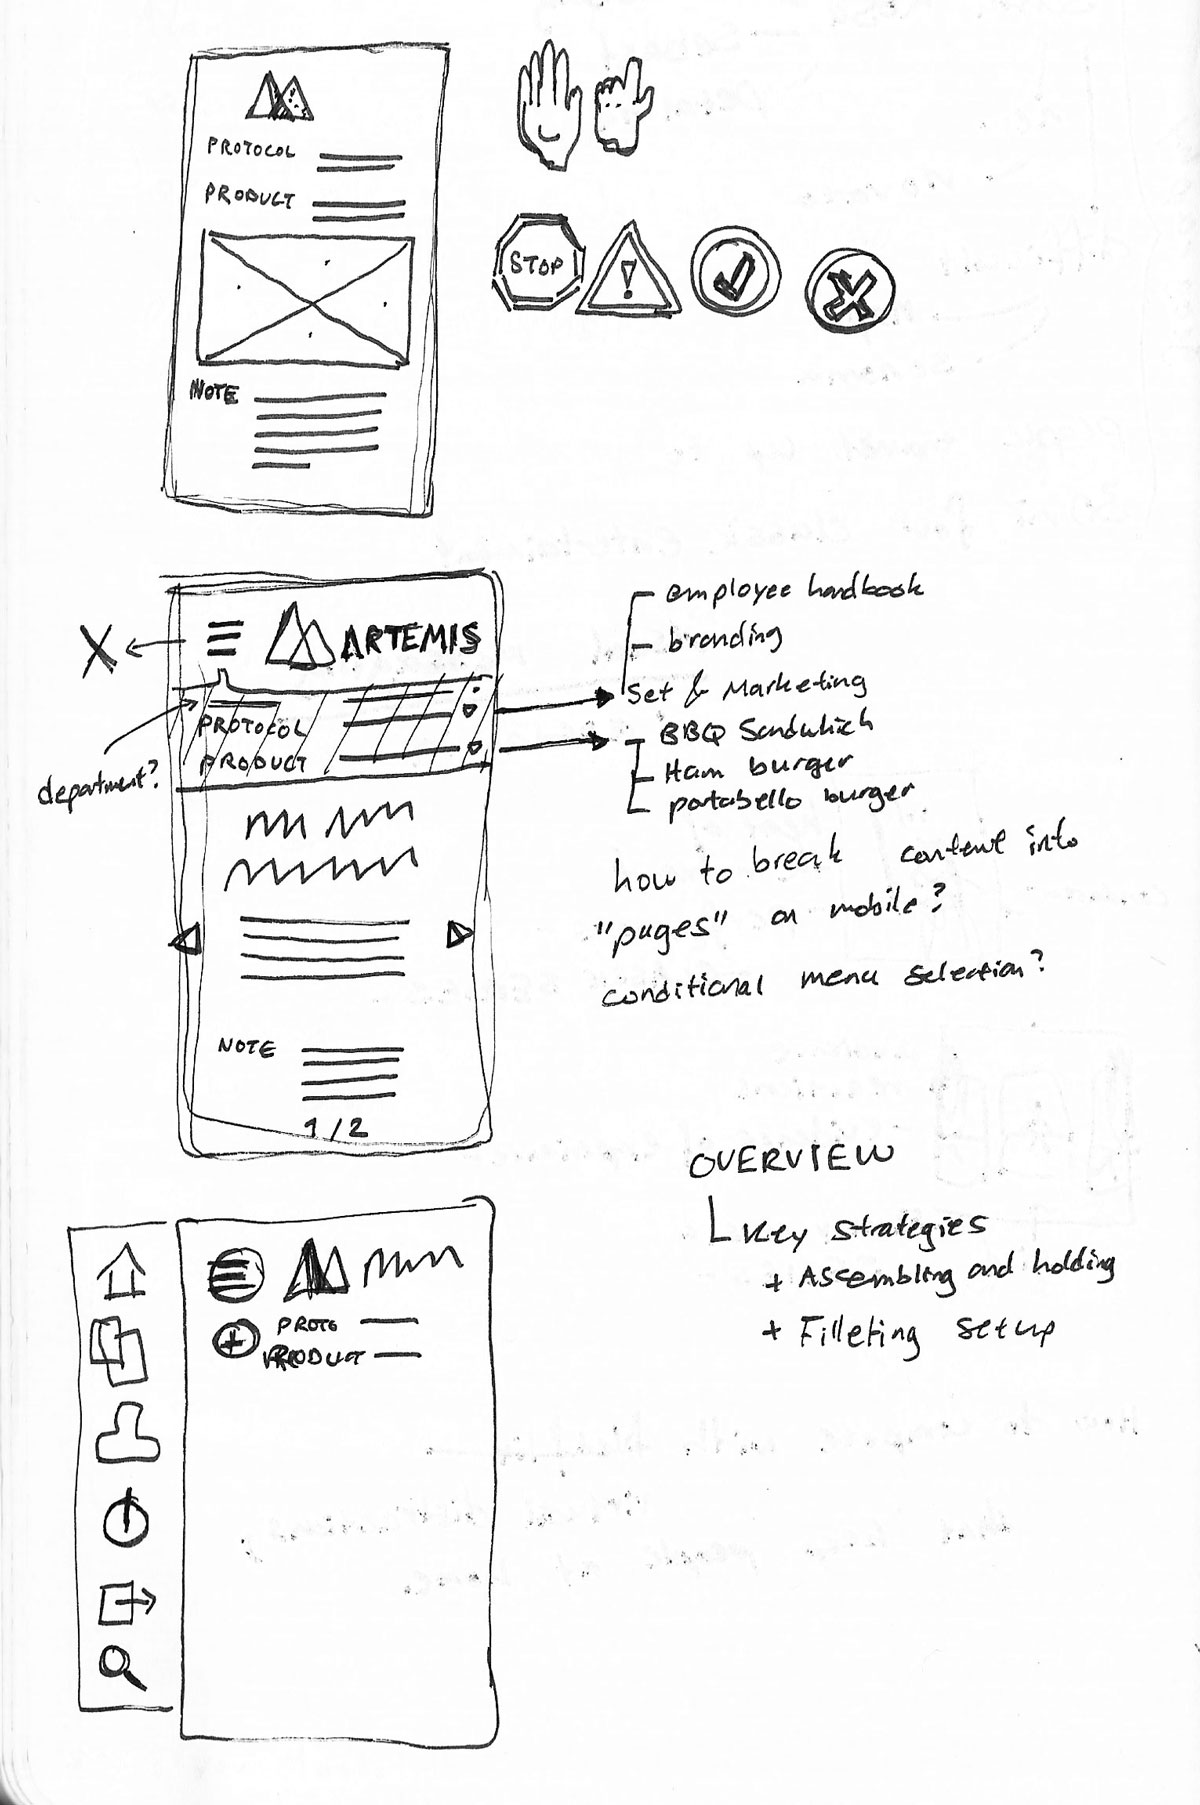 PROTOCOL
PRODUCT
NOTE
STOP
!
X
ARTEMIS
PROTOCOL
PRODUCT
department?
NOTE
1/2
employee handbook
branding
Set & Marketing
BBQ Sandwhich
Ham burger
portabello burger
how to break content into
"pages" on mobile?
conditional menu selection?
OVERVIEW
Key strategies
+ Assembling and holding
+ Filleting setup
PROTO
PRODUCT